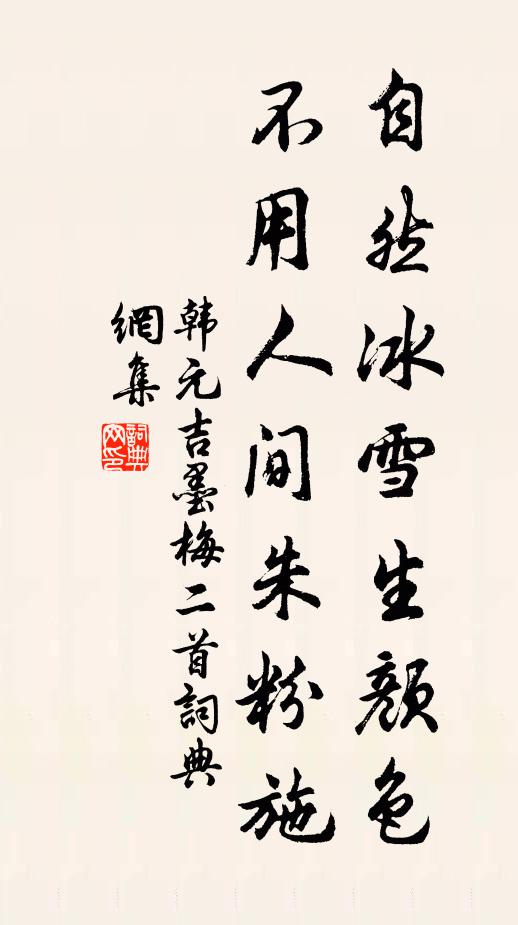 自然冰雪生顏色
不用人間朱粉施
韩元吉墨梅二首詞典
網集
詞典
网印